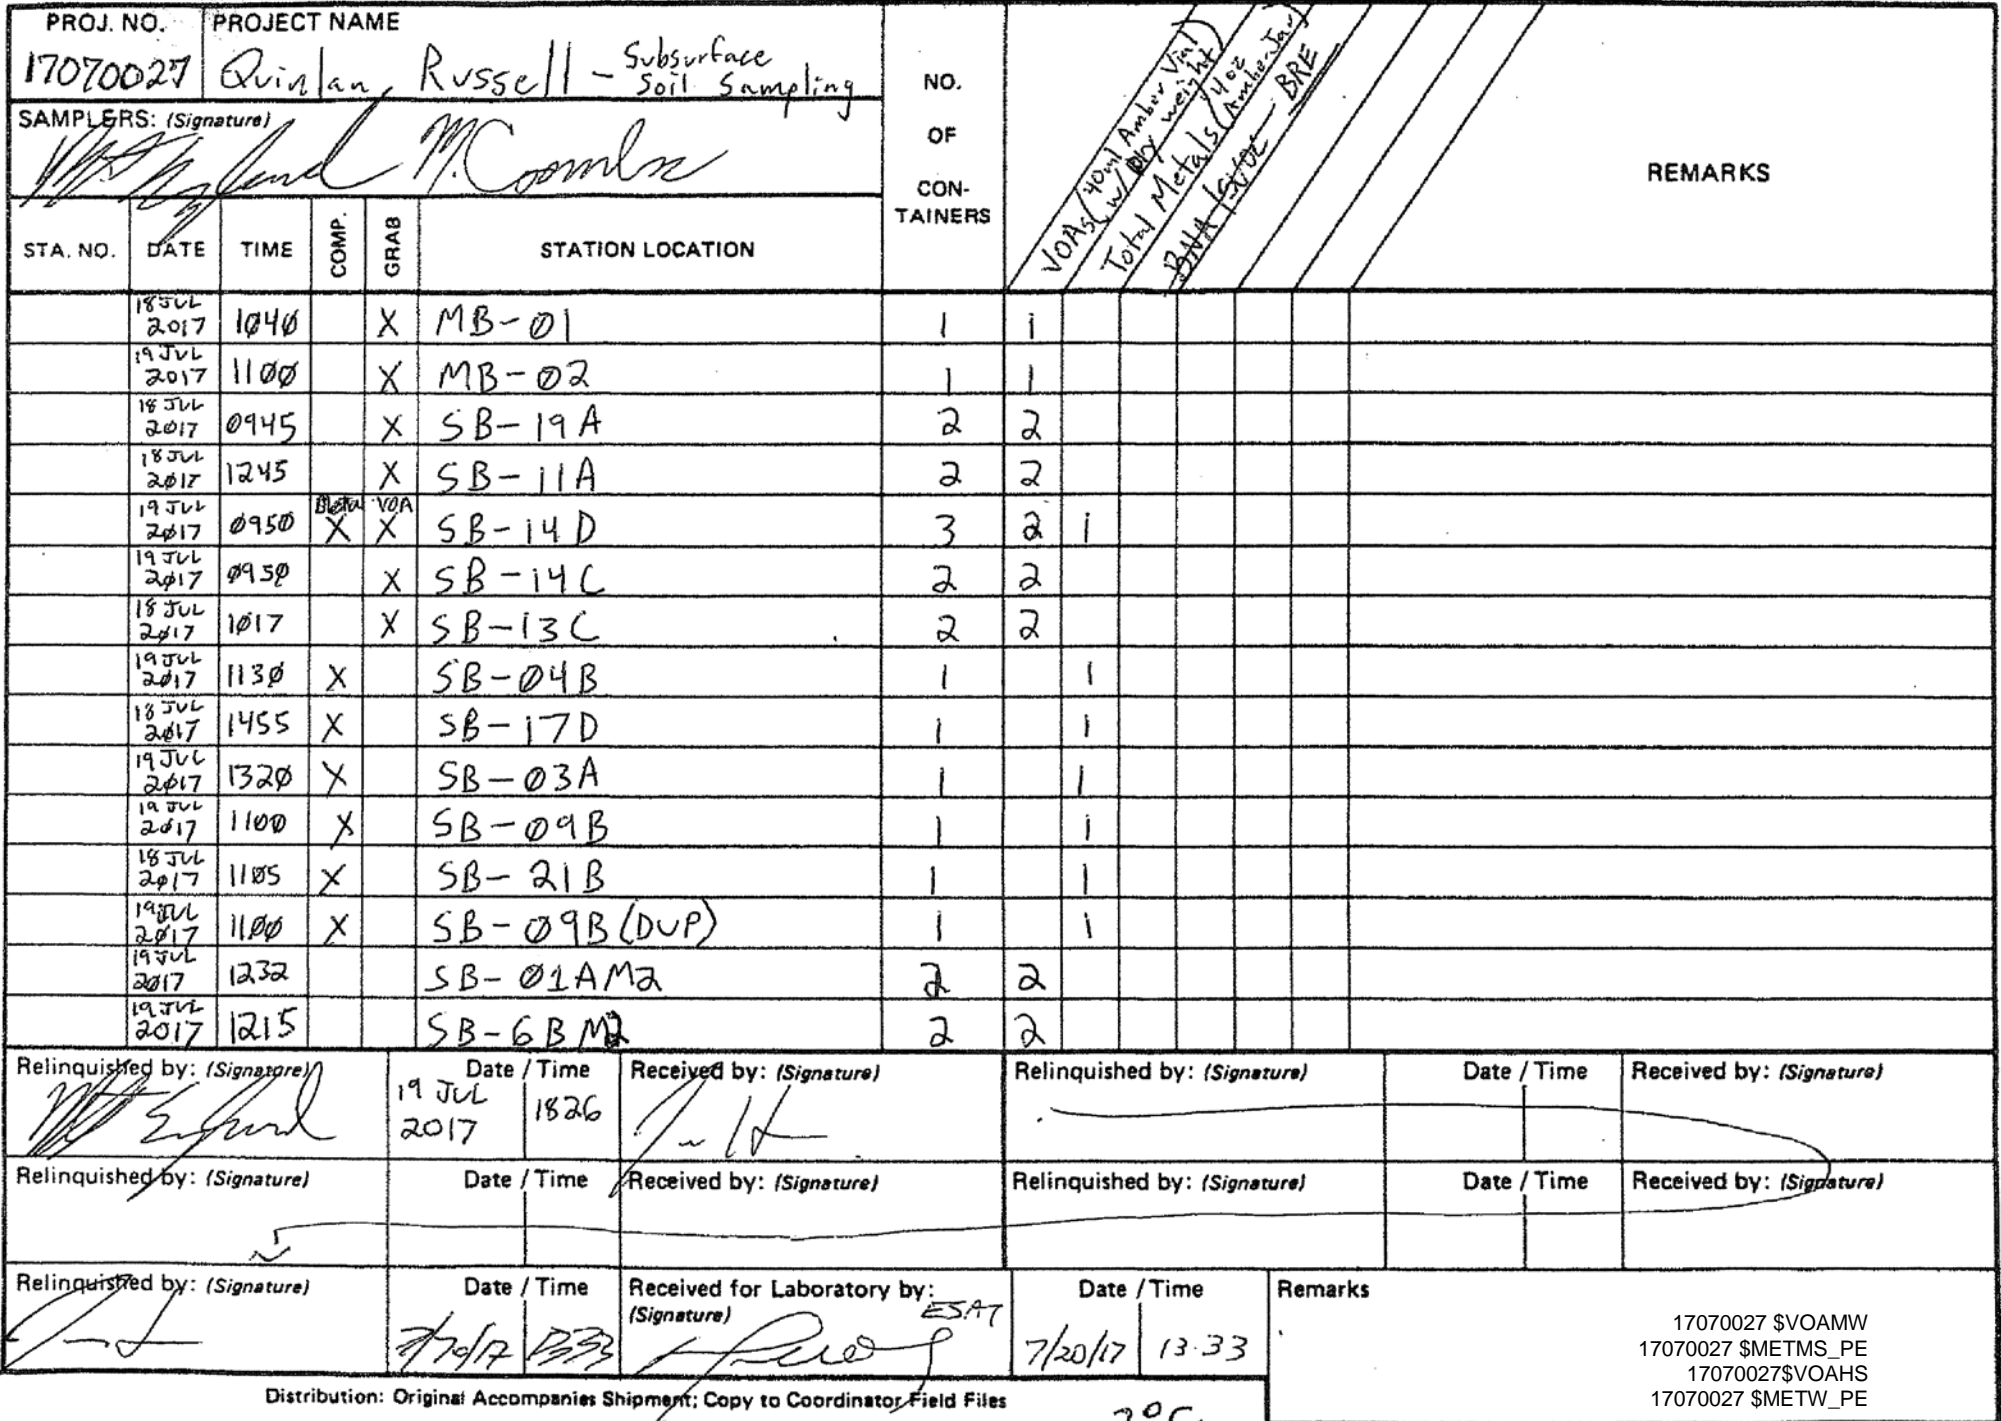 PROJ. NO. PROJECT NAME
17070027 Quinlan, Russell - Subsurface Soil Sampling
SAMPLERS: (Signature)
M. Coombs
NO. OF CON-TAINERS
VOAs (40ml Amber Vial w/ Dry weight)
Total Metals (4oz Amber Jar)
BNA BRE
REMARKS
STA. NO. DATE TIME COMP. GRAB STATION LOCATION
18 JUL 2017 1040 X MB-01 1 1
19 JUL 2017 1100 X MB-02 1 1
18 JUL 2017 0945 X SB-19A 2 2
18 JUL 2017 1245 X SB-11A 2 2
19 JUL 2017 0950 Metal X VOA X SB-14D 3 2 1
19 JUL 2017 0950 X SB-14C 2 2
18 JUL 2017 1017 X SB-13C 2 2
19 JUL 2017 1130 X SB-04B 1 1
18 JUL 2017 1455 X SB-17D 1 1
19 JUL 2017 1320 X SB-03A 1 1
19 JUL 2017 1100 X SB-09B 1 1
18 JUL 2017 1105 X SB-21B 1 1
19 JUL 2017 1100 X SB-09B (DUP) 1 1
19 JUL 2017 1232 SB-01AM2 2 2
19 JUL 2017 1215 SB-6BM2 2 2
Relinquished by: (Signature) Date / Time Received by: (Signature) Relinquished by: (Signature) Date / Time Received by: (Signature)
19 JUL 2017 1826
Relinquished by: (Signature) Date / Time Received by: (Signature) Relinquished by: (Signature) Date / Time Received by: (Signature)
Relinquished by: (Signature) Date / Time Received for Laboratory by: (Signature) Date / Time Remarks
7/20/17 1333 ESAT 7/20/17 13:33
17070027 $VOAMW
17070027 $METMS_PE
17070027$VOAHS
17070027 $METW_PE
Distribution: Original Accompanies Shipment; Copy to Coordinator Field Files